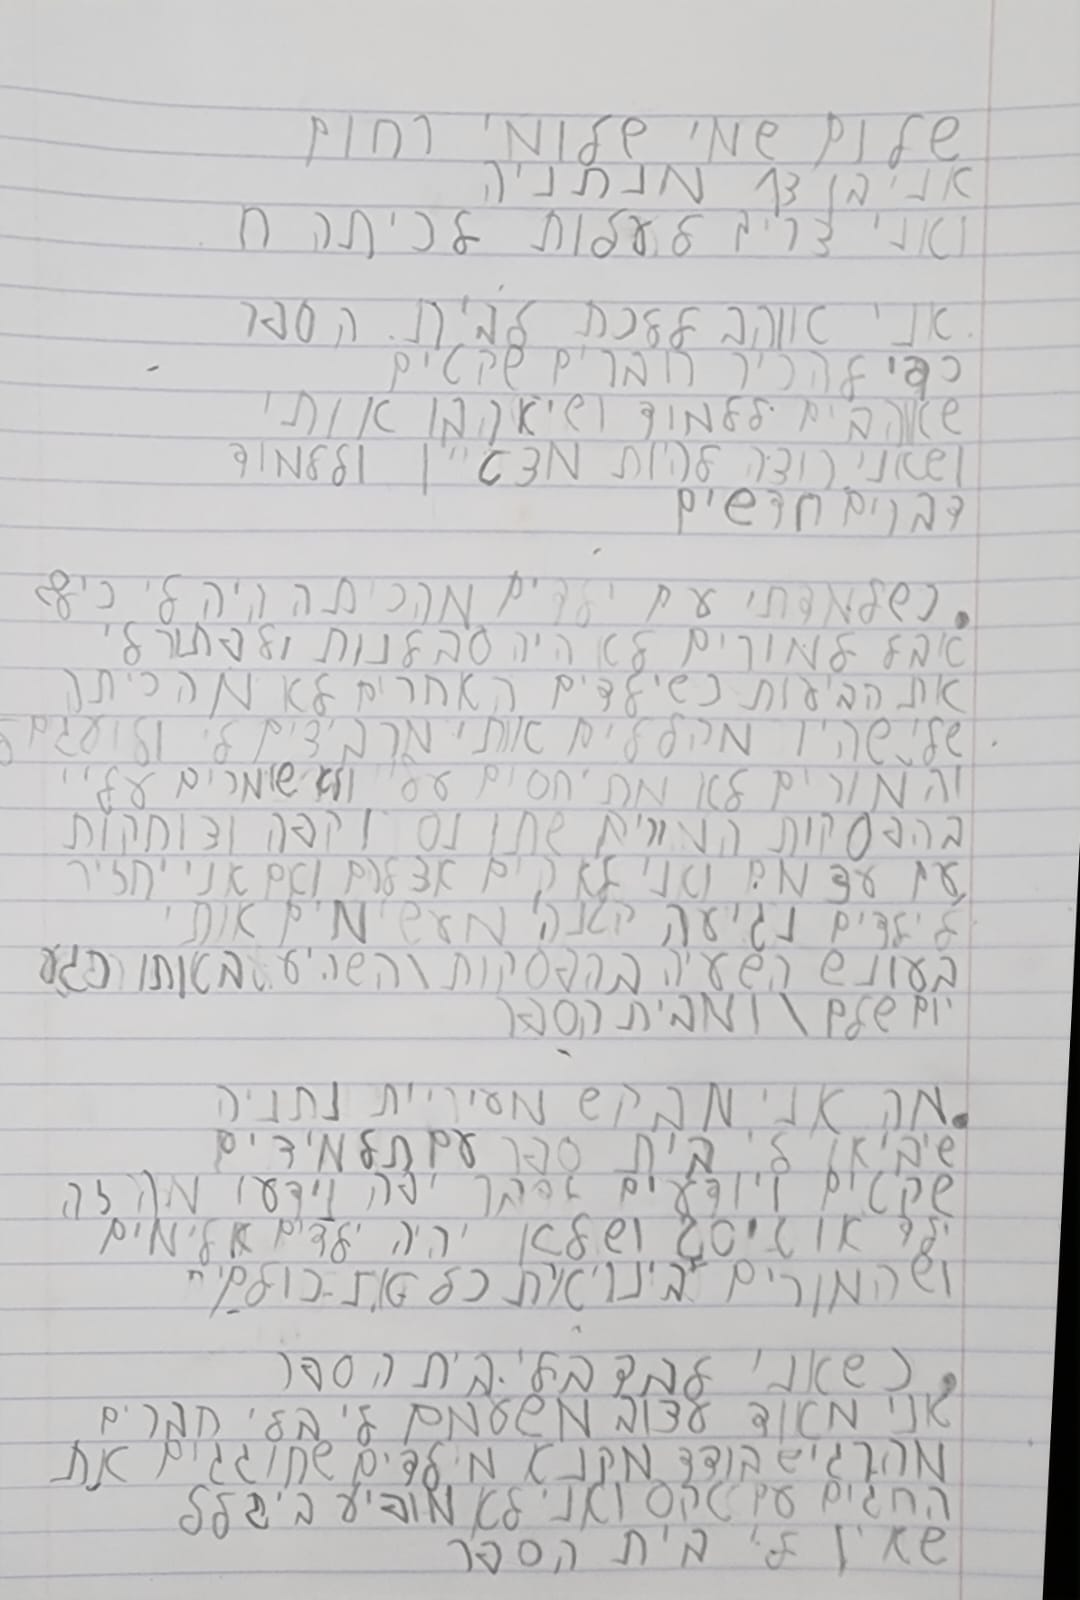 שלום שמי שלומי רחום
אני בן 13 מנתניה
ואני צריך לעלות לכיתה ח
אני אוהב ללכת לבית הספר
כשי להכיר חברים שקטים
שאוהבים ללמוד ושיאהבו אותי
ושאני רוצה להיות מצטיין וללמוד
דברים חדשים
. כשלמדתי עם ילדים מהכיתה היה לי כיף
אבל למורים לא היה סבלנות ולפתור לי
את הבעיות כשילדים האחרים לא מהכיתה
שלי שהיו מקללים אותי מרביצים לי ופוגעים
והמורים לא מתיחסים עליי ולא שומרים עליי
בהפסקות המורים שתו נס וקפה וצוחקות
עם עצמם ואני לא קיים אצלם ואם אני יחזיר
לילדים נגיעה הנאה מענישים אותי
בעונש השעיה בהפסקות והשהיעו באותו רגע
יום שלם / ומבית הספר
. מה אני מבקש מעיריית נתניה
שיביאו לי בית ספר עם תלמידים
שקטים ויודעים לדבר יפה וידעו מה זה
ילד אוטיסט ושלא יהיה ילדים אלימים
ושהמורים יבינו אותי כל את כולם"
. כשאני לבד בלי בית הספר
אני מאוד עצוב משעמם לי בלי חברים
מהרגיש בודד מקנא מילדים שחוגגים את
החגים עם טקס ואני לא מופיע ביגלל
שאין לי בית הספר